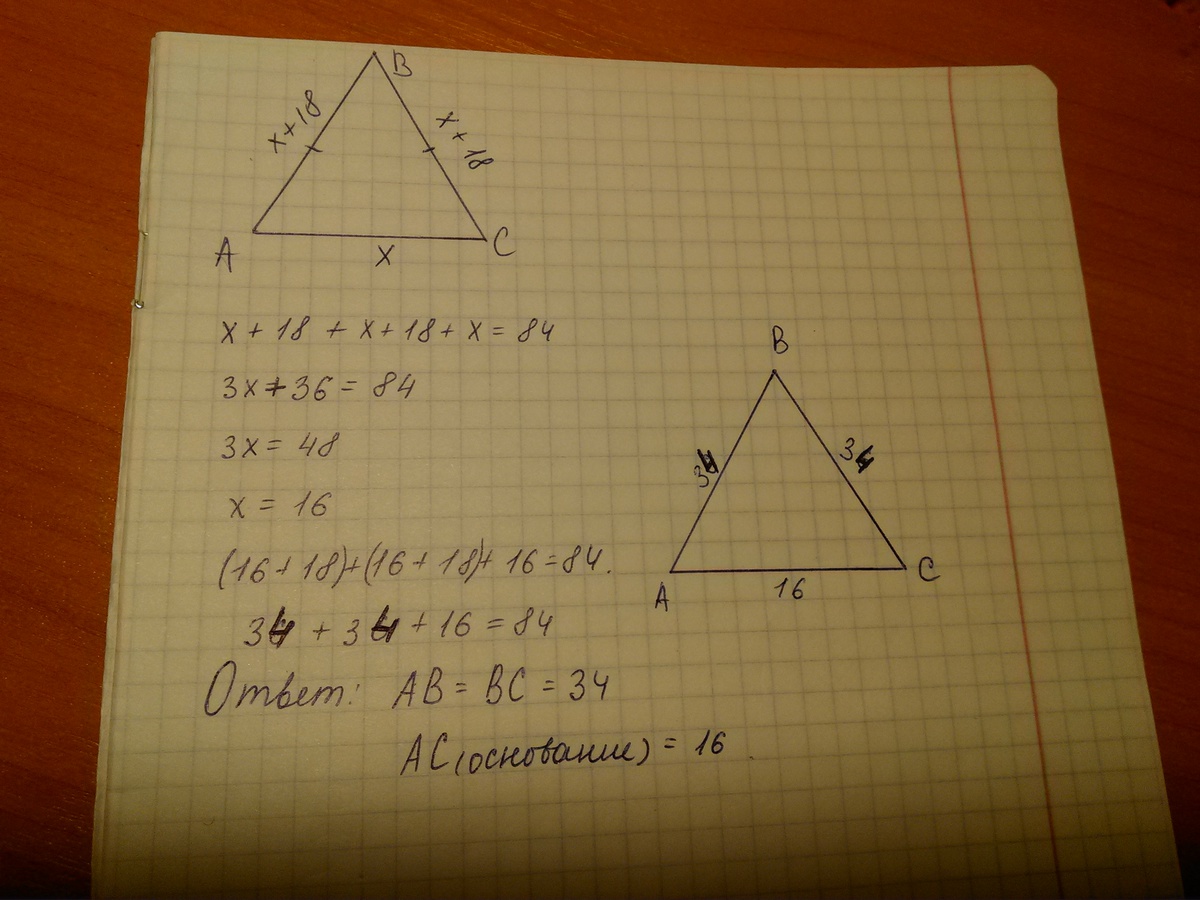 B
x+18
x+18
A
C
x
x + 18 + x + 18 + x = 84
3x + 36 = 84
3x = 48
x = 16
(16 + 18)+(16 + 18)+ 16 = 84.
34 + 34 + 16 = 84
Ответ: AB = BC = 34
AC (основание) = 16
B
34
34
A
C
16